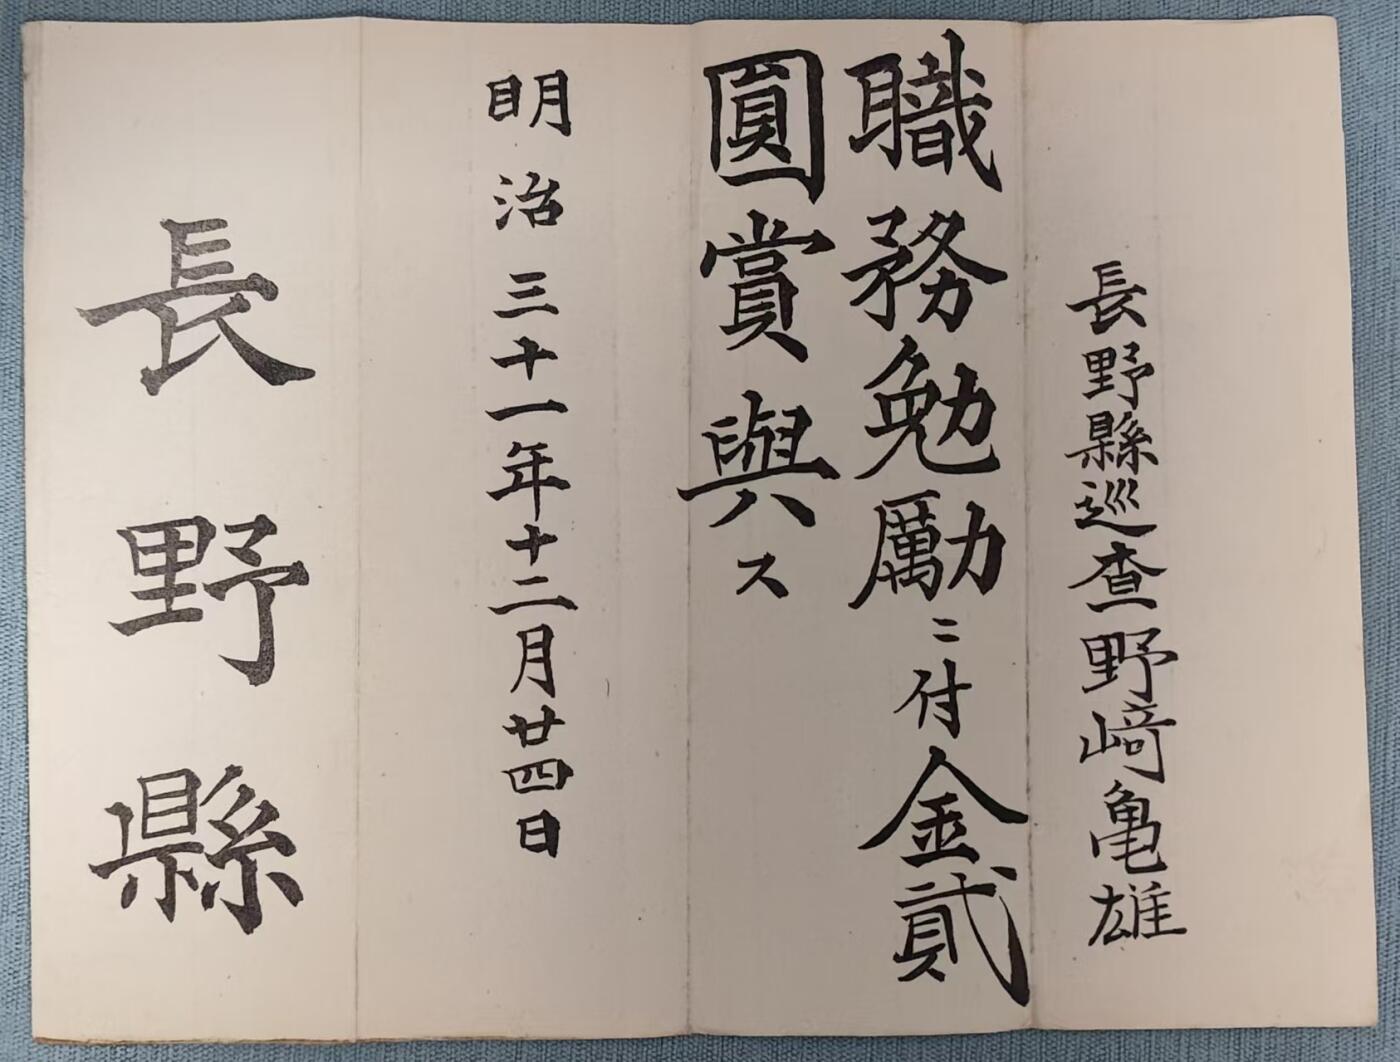 長野縣巡査野﨑亀雄
職務勉励ニ付金貳
圓賞與ス
明治三十一年十二月廿四日
長野縣